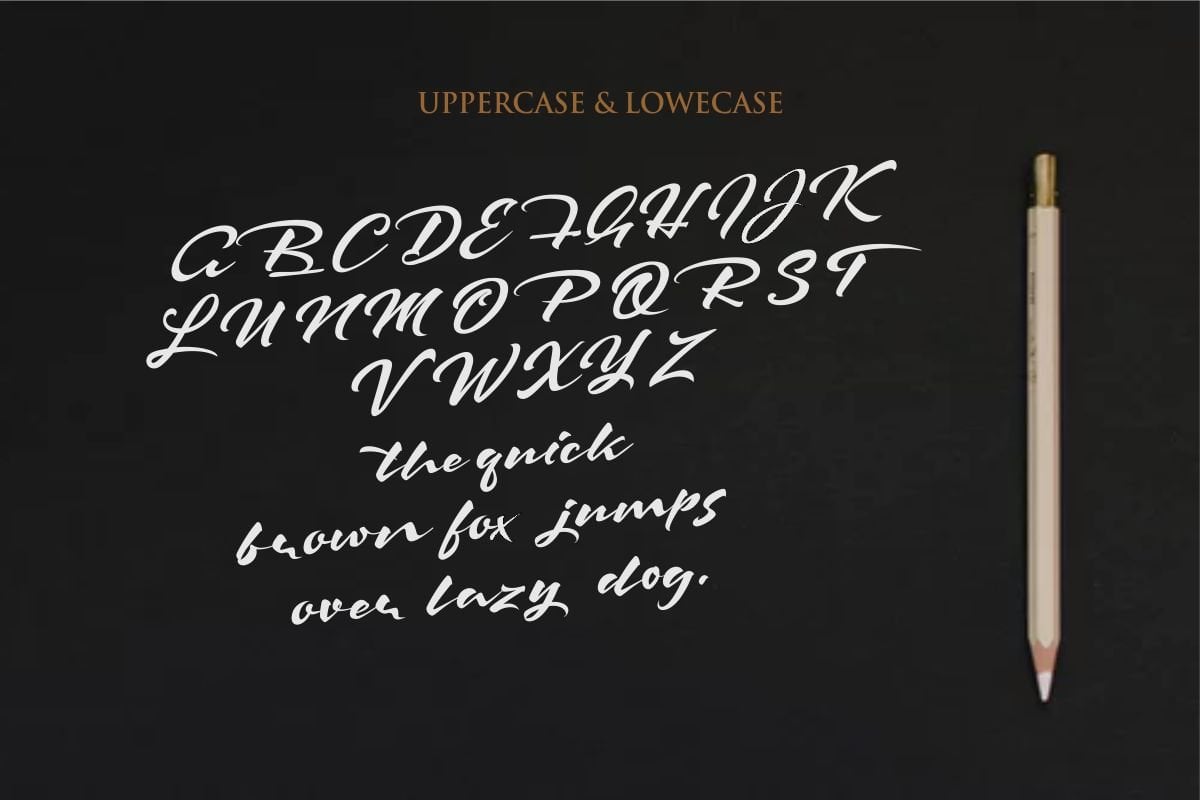 UPPERCASE & LOWECASE
ABCDEFGHIJK
LUNMOPQRST
VWXYZ
the quick
brown fox jumps
over lazy dog.